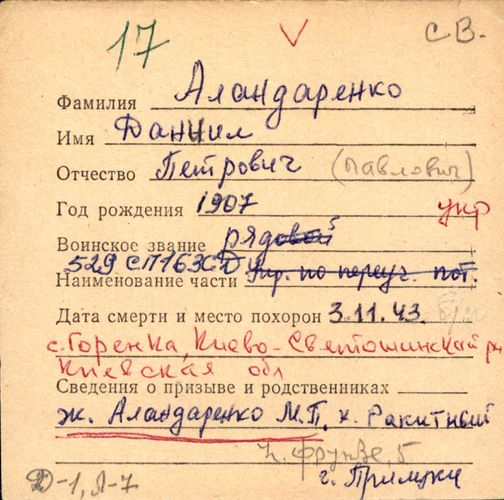 17 V СВ.
Фамилия Аландаренко
Имя Даниил
Отчество Петрович (Павлович)
Год рождения 1907 укр
Воинское звание рядовой
529 СП 163 СД Упр. по переуч. пот.
Наименование части
Дата смерти и место похорон 3.11.43.
с. Горенка, Киево-Святошинский рн
Киевская обл
Сведения о призыве и родственниках
ж. Аландаренко М.П. х. Ракитный
Фрунзе, 5
Д-1, Л-7 г. Прилуки